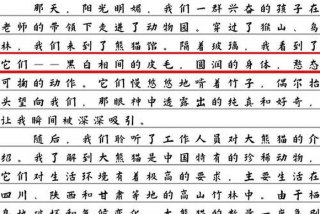 那天，阳光明媚，我们一群兴奋的孩子在
老师的带领下走进了动物园。穿过了猴山、鸟
林，我们来到了熊猫馆。隔着玻璃，我看到了
它们——黑白相间的皮毛，圆润的身体，憨态
可掬的动作。它们慢悠悠地啃着竹子，偶尔抬
头望向我们，那眼神中透露出的纯真和好奇，
让我瞬间被深深吸引。
随后，我们聆听了工作人员对大熊猫的介
绍。我了解到大熊猫是中国特有的珍稀动物，
它们对生活环境有着极高的要求，主要生活在
四川、陕西和甘肃等地的高山竹林中。由于栖